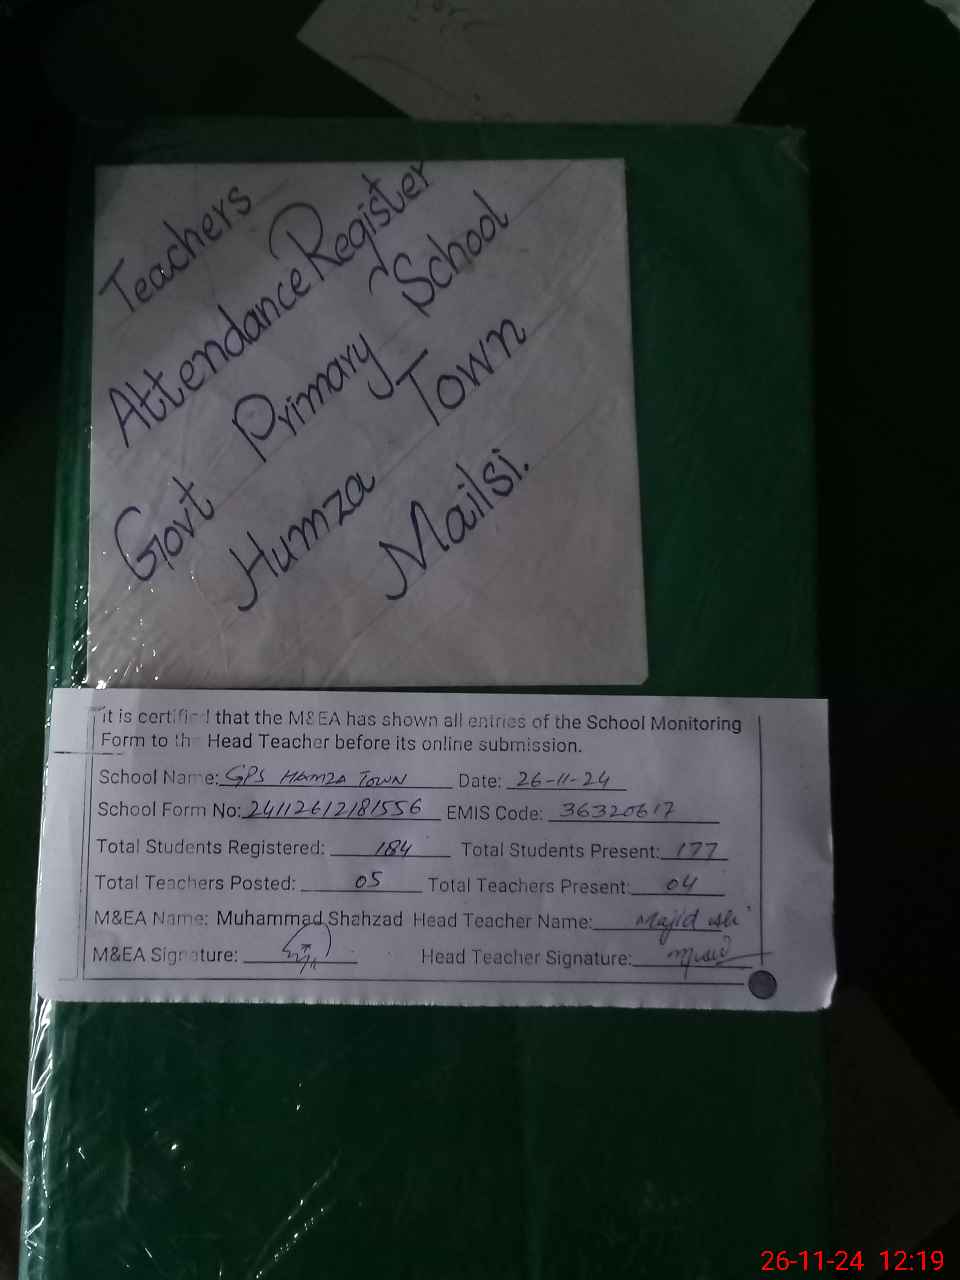 Teachers
Attendance Register
Govt Primary School
Humza Town
Mailsi.
it is certified that the M&EA has shown all entries of the School Monitoring
Form to the Head Teacher before its online submission.
School Name: GPS HAMZA TOWN Date: 26-11-24
School Form No: 24112612181556 EMIS Code: 36320617
Total Students Registered: 184 Total Students Present: 177
Total Teachers Posted: 05 Total Teachers Present: 04
M&EA Name: Muhammad Shahzad Head Teacher Name: Majid
M&EA Signature: Head Teacher Signature:
26-11-24 12:19